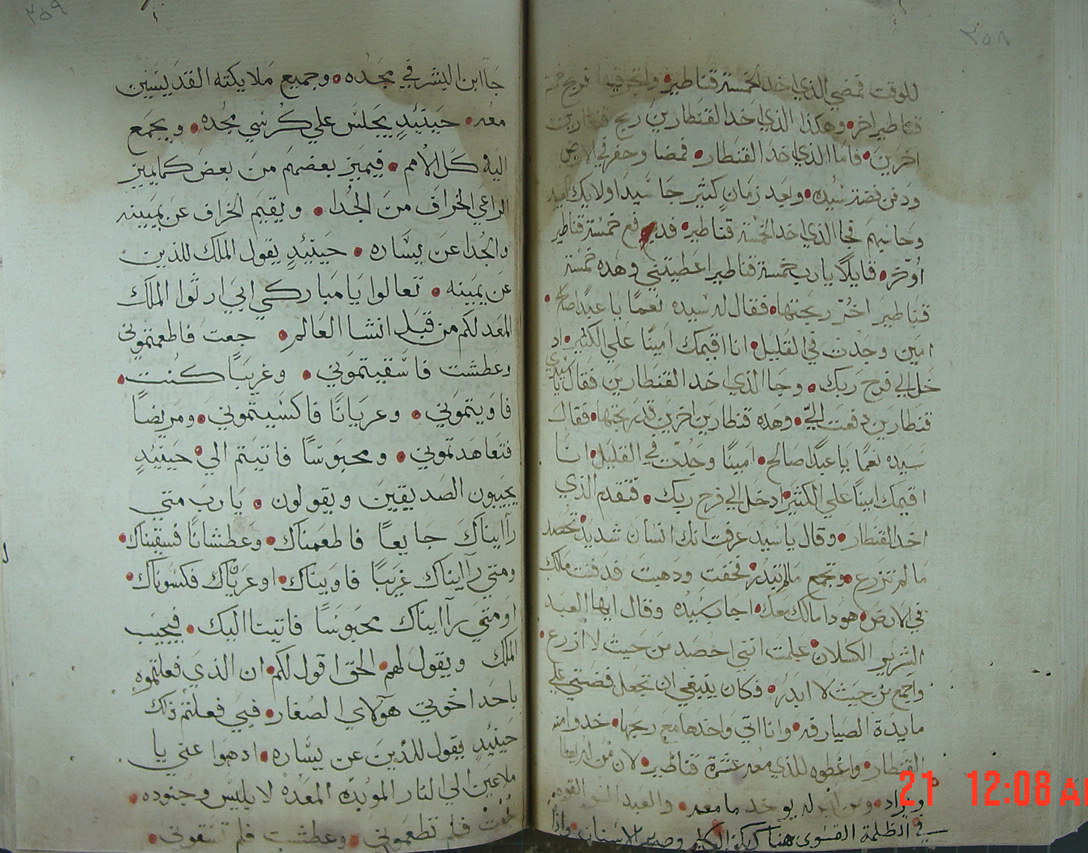 ٢٥٨
للوقت فمضي الذي اخد الخمسة قناطير واتجر فيها فربح خمسة
قناطير اخر وهكذا الذي اخد القنطارين ربح قنطارين
اخرين فاما الذي اخد القنطار فمضا وحفر في الارض
ودفن فضة سيده وبعد زمان كتير جا سيد اولايك العبيد
وحاسبهم فجا الذي اخد الخمسة قناطير فدفع خمسة قناطير
اخر قايلا يارب خمسة قناطير اعطيتني وهده خمسة
قناطير اخر ربحتها فقال له سيده نعما يا عبدا صالح
امين وجدت في القليل انا اقيمك امينا علي الكتير اد
خل الي فرح ربك وجا الذي اخد القنطارين فقال يا سيدي
قنطارين دفعت الي وهده قنطارين اخرين قد ربحتها فقال
سيده نعما يا عبدا صالح امينا وجدت في القليل انا
اقيمك امينا علي الكتير ادخل الي فرح ربك فتقدم الذي
اخد القنطار وقال يا سيد عرفت انك انسان شديد تحصد
ما لم تزرع وتجمع مالم تبدر فخفت ودهبت فدفنت مالك
في الارض هودا مالك معك اجاب سيده وقال ايها العبد
الشرير الكسلان علمت انني احصد من حيث لا ازرع
واجمع من حيث لا ابدر فكان ينبغي ان تجعل فضتي علي
مايدة الصيارفه وانا اتي واخدها مع ربحها خدوا منه
القنطار واعطوه للذي معه عشرة قناطير لان من له يعطا
ويزاد ومن ليس له يوخد ما معه والعبد القوه
في الظلمة القصوى هناك يكون البكا وصرير الاسنان واذا
٢٥٩
جا ابن البشر في مجده وجميع ملايكته القديسين
معه حينيد يجلس علي كرسي مجده ويجمع
اليه كل الامم فيميز بعضهم من بعض كما يميز
الراعي الخراف من الجدا ويقيم الخراف عن يمينه
والجدا عن يساره حينيد يقول الملك للذين
عن يمينه تعالوا يا مباركي ابي ارثوا الملك
المعد لكم من قبل انشا العالم جعت فاطعمتموني
وعطشت فاسقيتموني وغريبا كنت
فاويتموني وعريانا فاكسيتموني ومريضا
فتعاهدتموني ومحبوسا فاتيتم الي حينيد
يجيبون الصديقين ويقولون يارب متي
راايناك جايعا فاطعمناك وعطشانا فسقيناك
ومتي راايناك غريبا فاويناك او عريانا فكسوناك
او متي راايناك محبوسا فاتينا اليك فيجيب
الملك ويقول لهم الحق اقول لكم ان الذي فعلتموه
باحد اخوتي هولاي الصغار فبي فعلتم ذلك
حينيد يقول للذين عن يساره ادهبوا عني يا
ملاعين الي النار الموبده المعده لابليس وجنوده
جعت فلم تطعموني وعطشت فلم تسقوني
21 12:08 AM